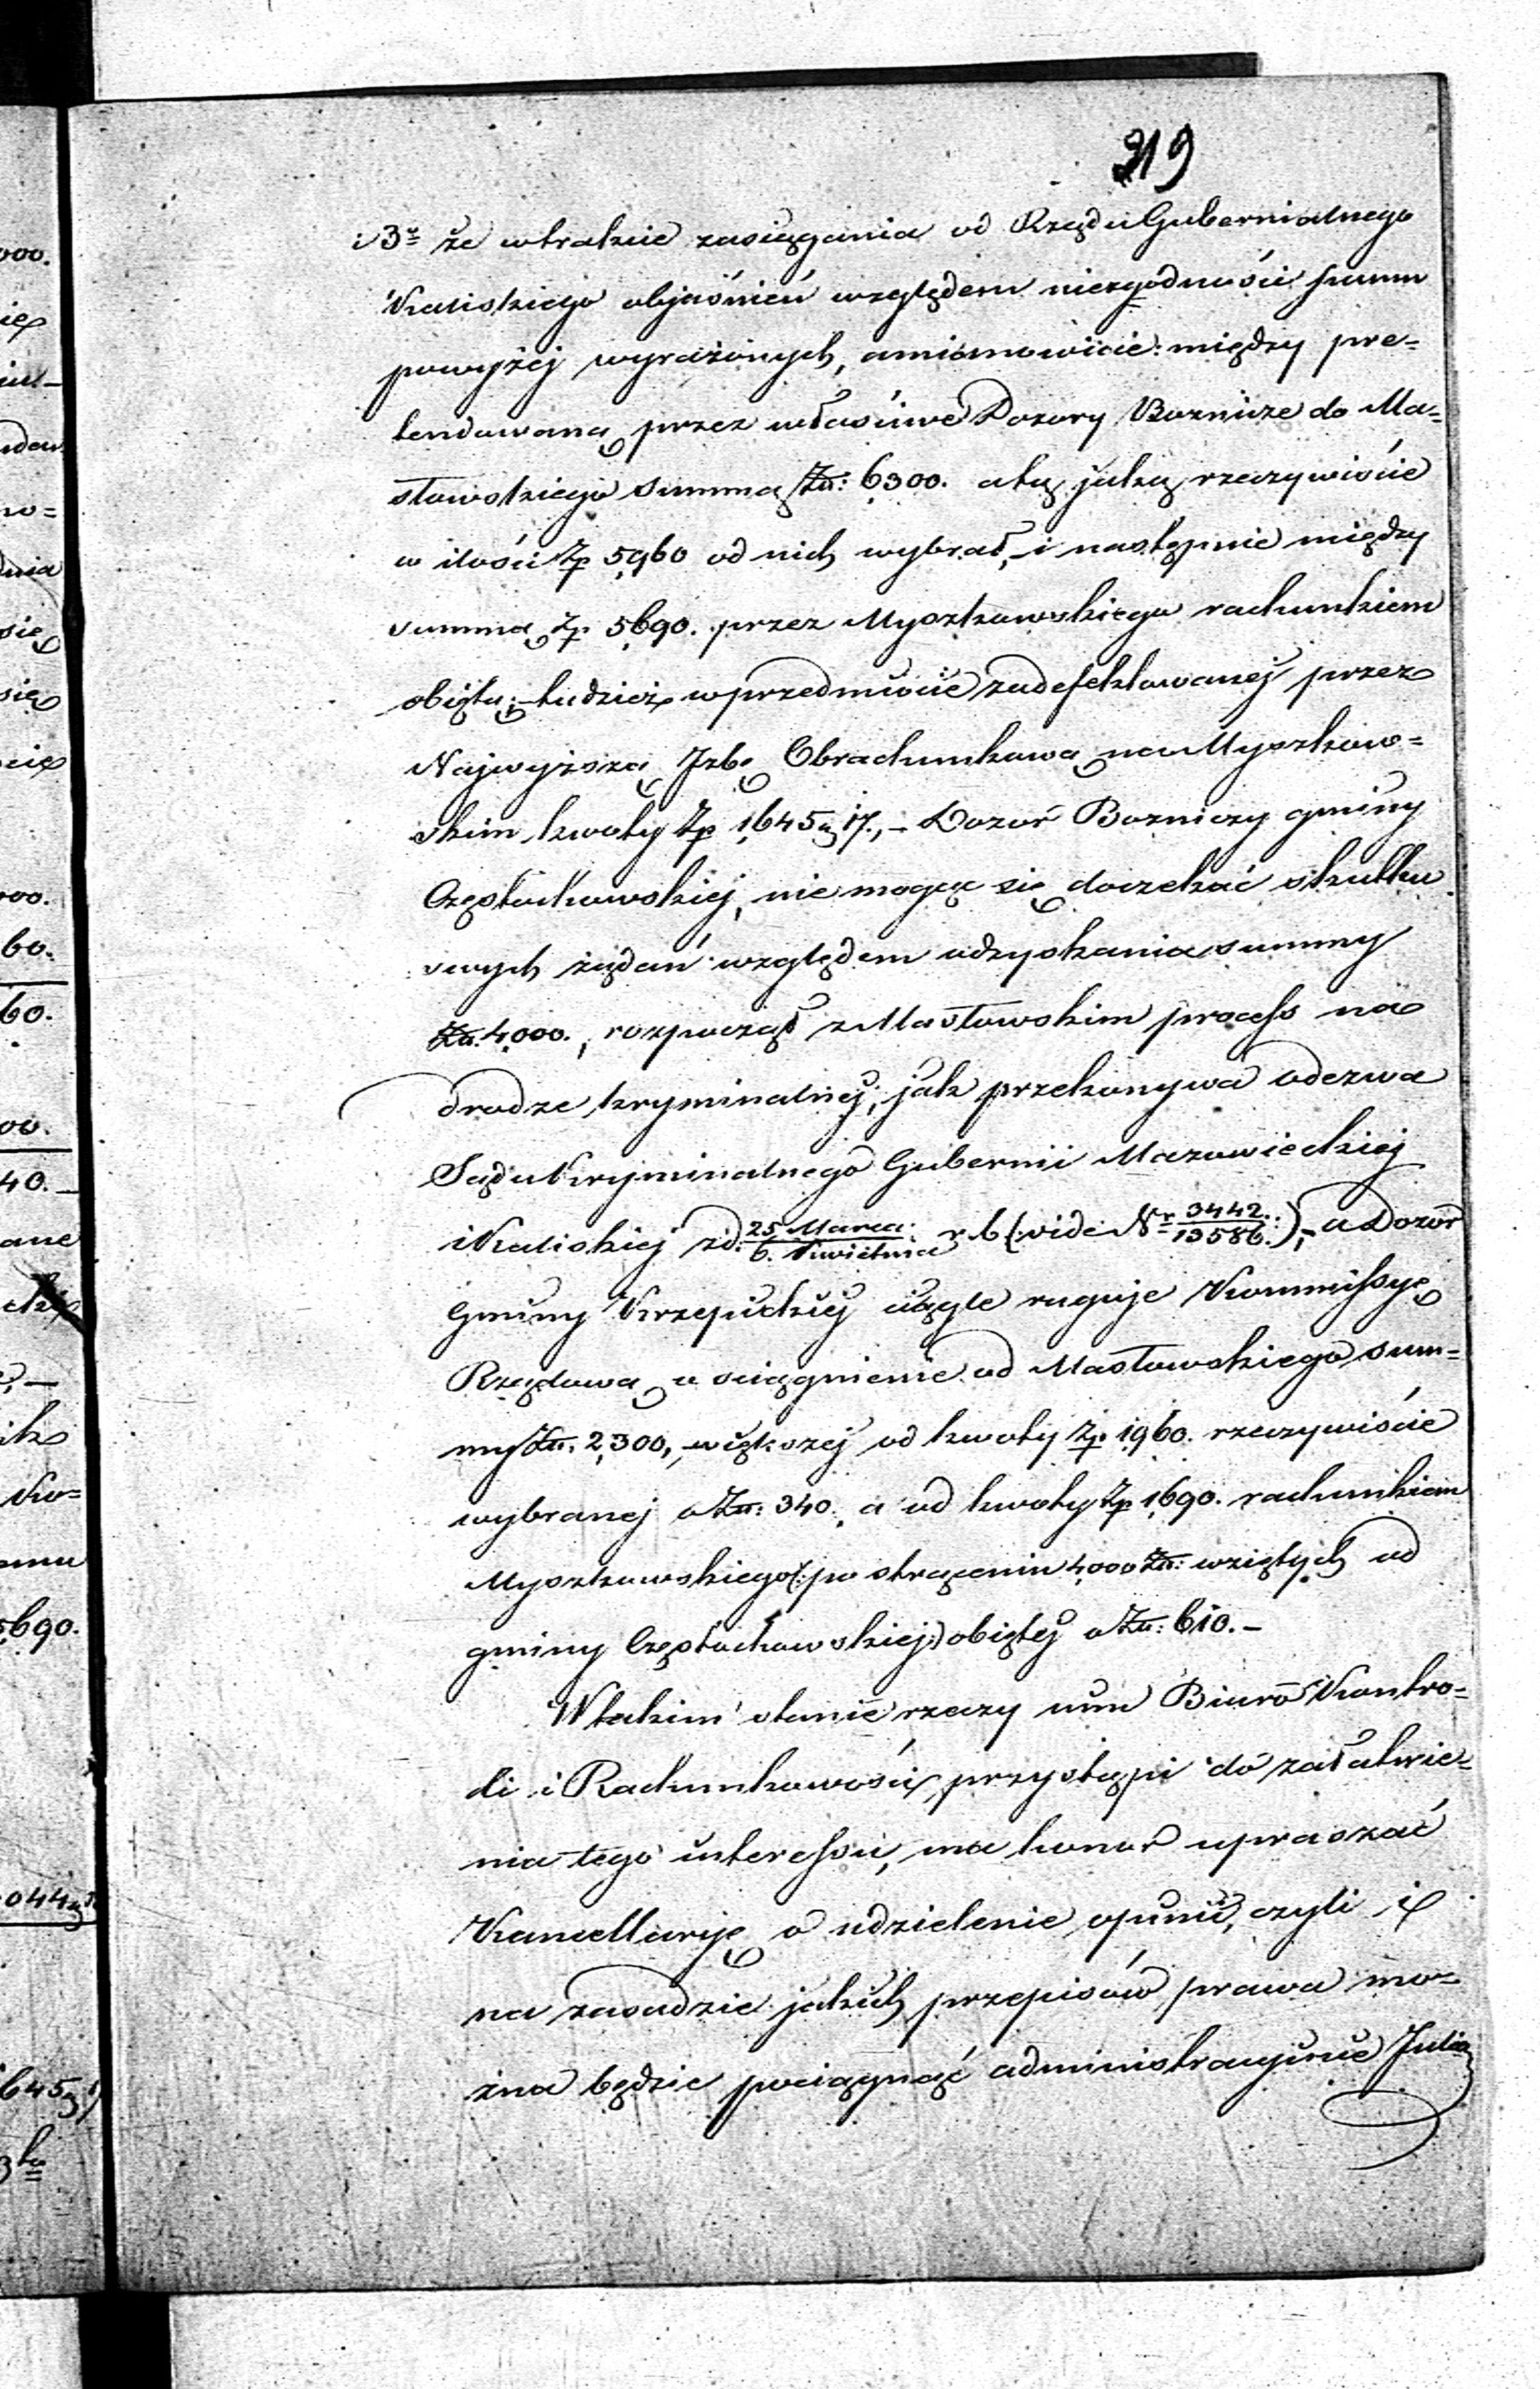 319
i 3º że w trakcie zasięgania od Rządu Gubernialnego
Kaliskiego objaśnień względem niezgodności summ
powyżej wyrażonych, a mianowicie: między pre=
tendowaną przez właściwe Dozory Bożnicze do Ma=
słowskiego summą Zł: 6300. a tą jaką rzeczywiście
w ilości Zp 5,960 od nich wybrał, - i następnie między
summą Zp. 5,690. przez Myszkowskiego rachunkiem
objętą; - tudzież w przedmiocie zadefektowanej przez
Najwyższą Izbę Obrachunkową na Myszkow=
skim kwoty Zp 1,645 g 17., - Dozór Bożniczy gminy
Częstochowskiej, nie mogąc się doczekać skutku
swych żądań względem odzyskania summy
Zł. 4,000., rozpoczął z Masłowskim process na
drodze kryminalnej, jak przekonywa odezwa
Sądu Kryminalnego Gubernii Mazowieckiej
i Kaliskiej z d: 25 Marca / 6. Kwietnia r b (: vide Nr 3442. / 13586. :), - a Dozór
Gminy Krzepickiej ciągle raguje Kommissyę
Rządową o ściągnienie od Masłowskiego sum=
my Zł. 2,300, większej od kwoty Zp. 1,960. rzeczywiście
wybranej o Zł: 340., a od kwoty Zp 1,690. rachunkiem
Myszkowskiego (: po strąceniu 4,000 Zł: wziętych od
gminy Częstochowskiej :) objętej o Zł: 610. -
W takim stanie rzeczy nim Biuro Kontro=
li i Rachunkowości, przystąpi do załatwie=
nia tego interessu, ma honor upraszać
Kancellaryę o udzielenie opinii, czyli i
na zasadzie jakich przepisów prawa mo=
żna będzie pociągnąć administracyjnie Julia
000.
60.
60.
00.
40. -
5,690.